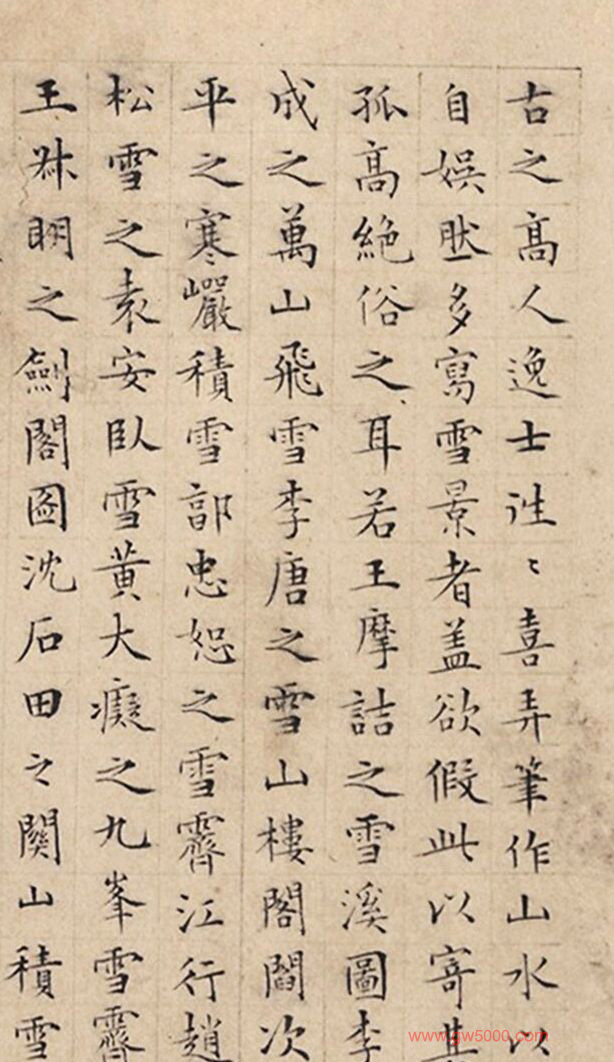 古之高人逸士往〻喜弄筆作山水以
自娯然多寫雪景者盖欲假此以寄其
孤高絶俗之耳若王摩詰之雪溪圖李
成之萬山飛雪李唐之雪山樓閣閻次
平之寒巖積雪郭忠恕之雪霽江行趙
松雪之袁安臥雪黃大癡之九峯雪霽
王叔明之劍閣圖沈石田之關山積雪
www.gw5000.com